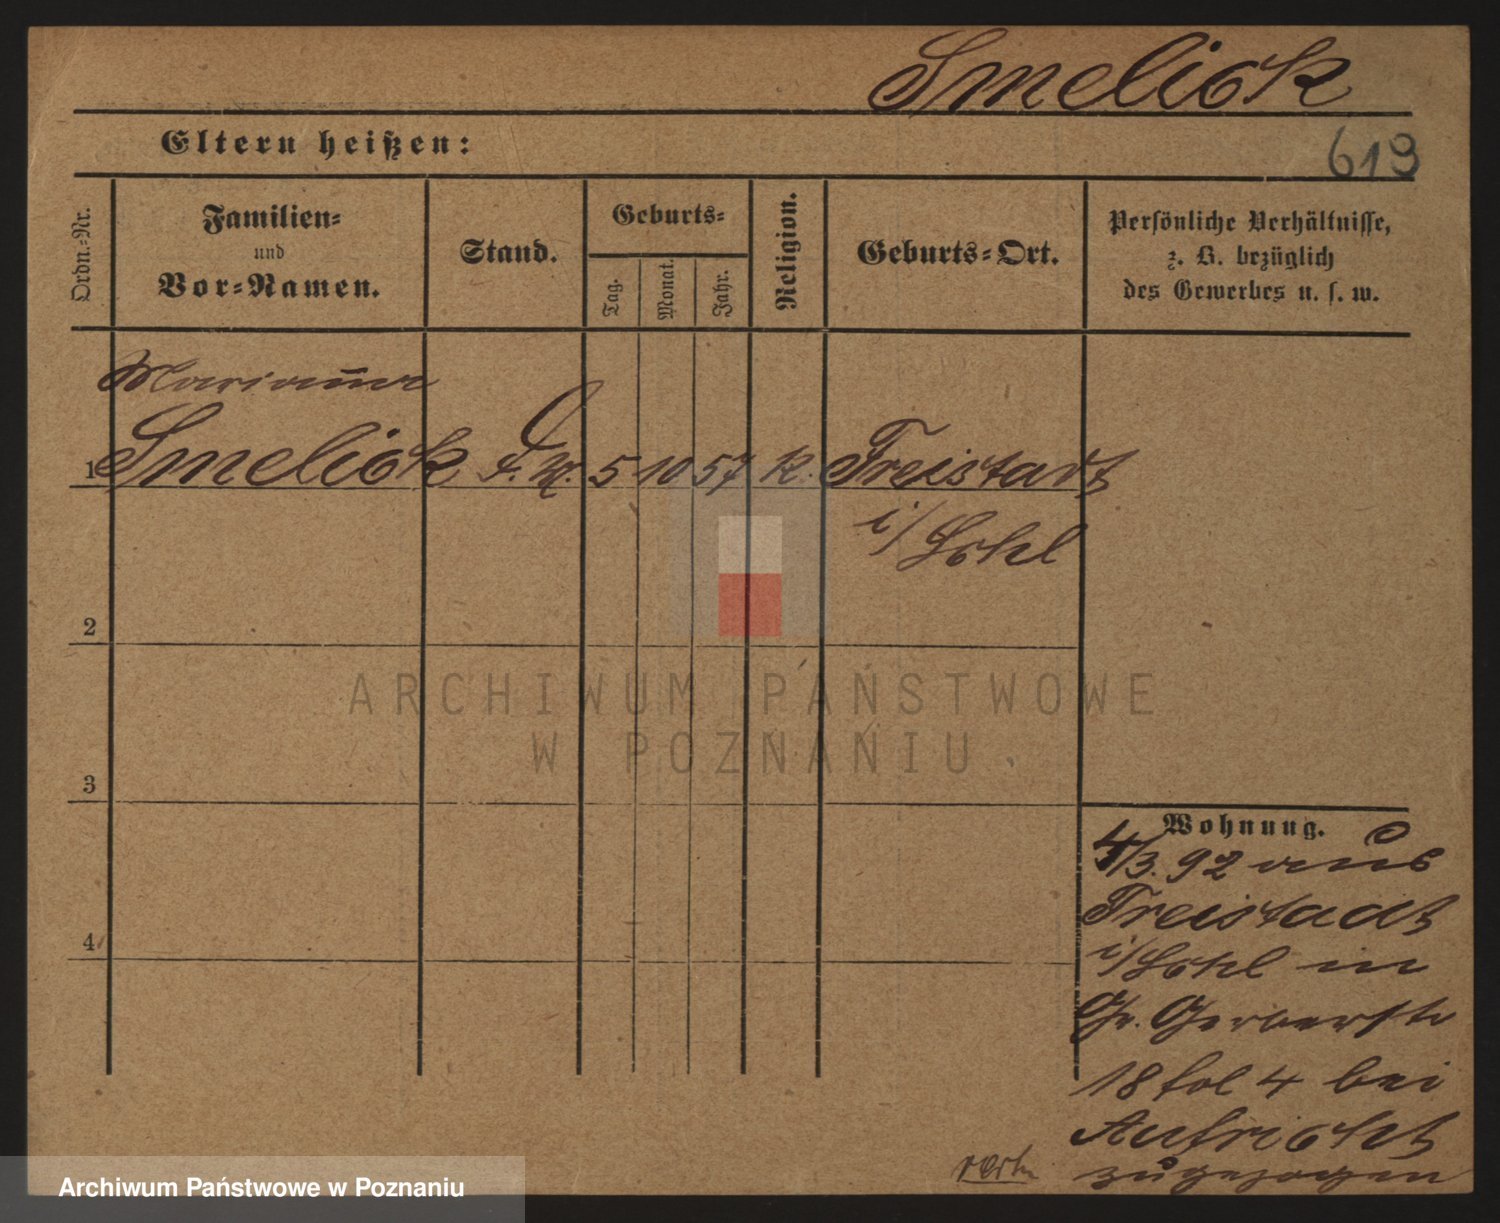 Smelick
Eltern heißen:
619
Ordn.=Nr.
Familien=
und
Vor=Namen.
Stand.
Geburts=
Tag.
Monat.
Jahr.
Religion.
Geburts=Ort.
Persönliche Verhältnisse,
z. B. bezüglich
des Gewerbes u. s. w.
Marianna
1 Smelick 5 10 57 K. Freistadt
i/
2
ARCHIWUM PAŃSTWOWE
W POZNANIU
3
Wohnung.
4/3. 92 aus
Freistadt
i/ in
Gr. Gerberstr
18 fol 4 bei
Aufricht
zugezogen
4
Archiwum Państwowe w Poznaniu